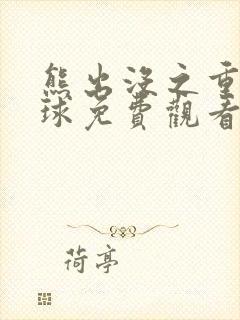 熊出没之重
球免費觀看
荷亭